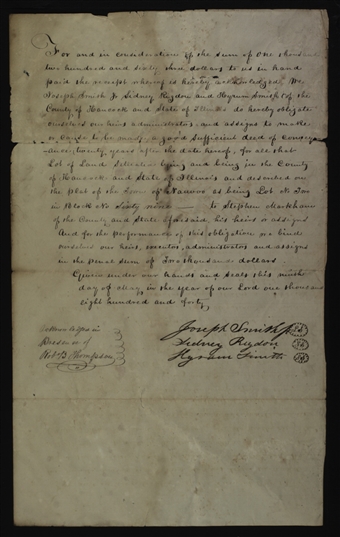 For and in consideration of the sum of One thousand
two hundred and sixty three dollars to us in hand
paid the receipt whereof is hereby acknowledged. We
Joseph Smith Jr Sidney Rigdon and Hyrum Smith of the
County of Hancock and State of Illinois do hereby obligate
ourselves our heirs administrators, and assigns to make
or cause to be made, a good Sufficient deed of convey-
ance, twenty years after the date hereof, for all that
Lot of Land Situation lying and being in the County
of Hancock and State of Illinois and described on
the Plot of the Town of Nauvoo as being Lot No
in Block No Sixty to Stephen Markham
of the County and State aforesaid his heirs or assigns
And for the performance of this obligation we bind
ourselves our heirs, executors, administrators and assigns
in the Penal Sum of Two thousand dollars.
Given under our hands and seals this ninth
day of May, in the year of our Lord one thousand
eight hundred and forty,
in
Presence of
Robt B Thompson
Joseph Smith Jr
Sidney Rigdon
Hyrum Smith